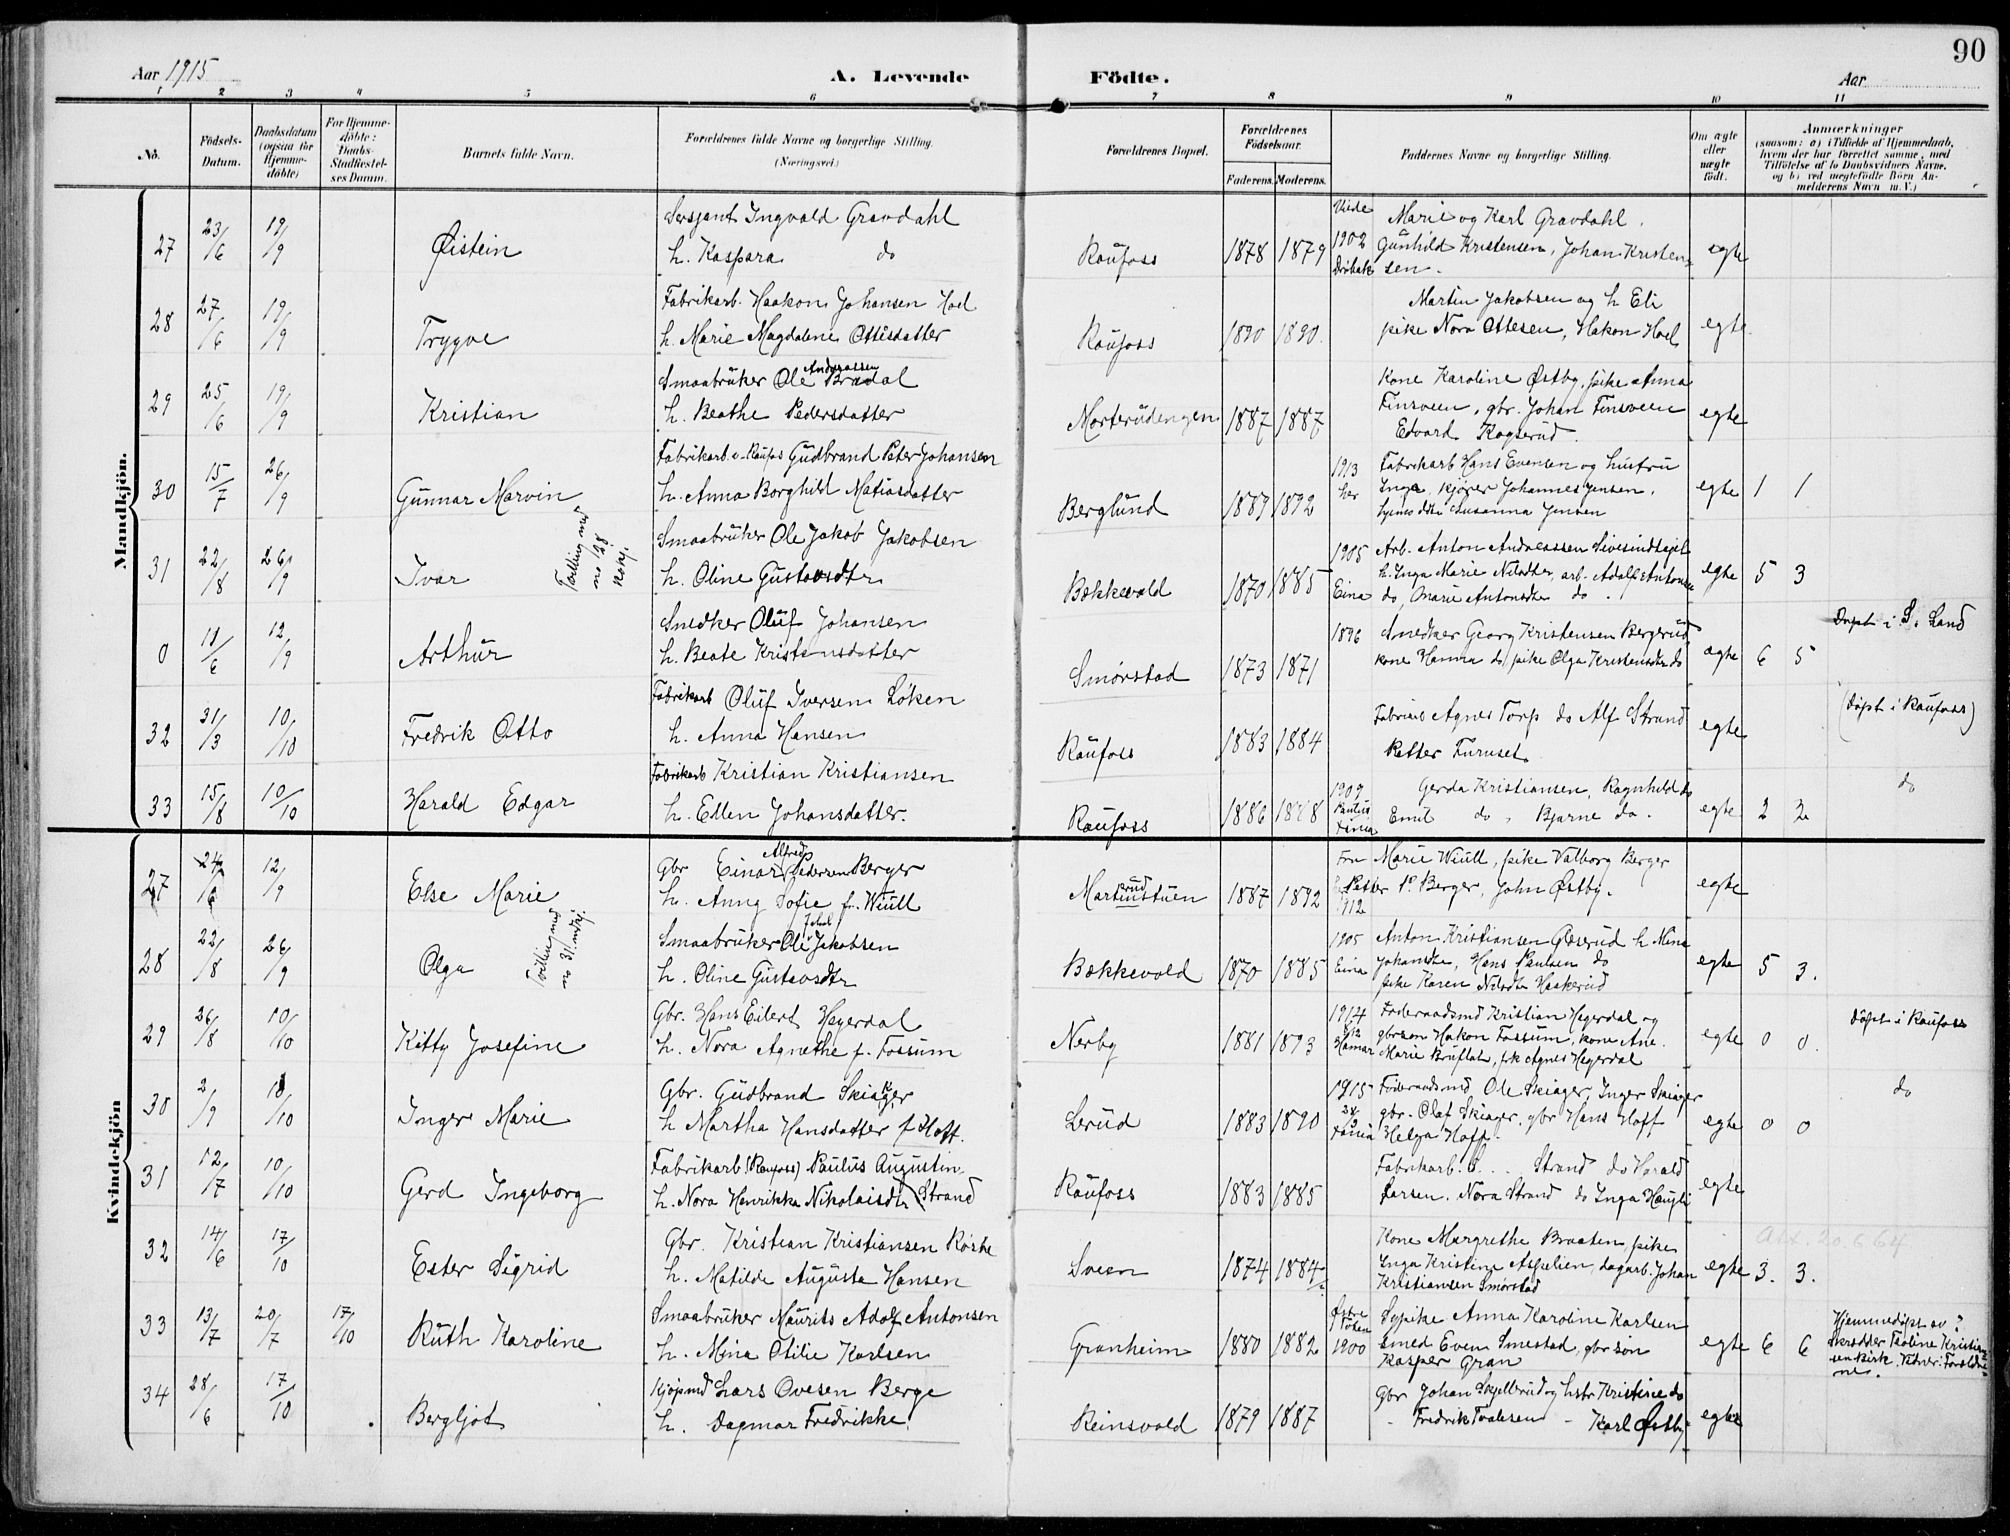 90
Aar 1915
A. Levende Födte.
Aar
1 2 3 4 5 6 7 8 9 10 11
No.
Födsels-Datum.
Daabsdatum (ogsaa for Hjemme-döbte)
For Hjemme-döbte: Daabs-Stadfæstel-ses Datum.
Barnets fulde Navn.
Forældrenes fulde Navne og borgerlige Stilling. (Næringsvei.)
Forældrenes Bopæl.
Forældrenes Födselsaar.
Faderens. Moderens.
Faddernes Navne og borgerlige Stilling.
Om ægte eller uægte födt.
Anmærkninger
(saasom: a) i Tilfælde af Hjemmedaab, hvem der har forrettet samme, med Tilföielse af to Daabsvidners Navne. og b) ved uægtefödte Börn An-melderens Navn m. V.)
Mandkjön.
27 23/6 19/9 Øistein
Sersjant Ingvald Gravdahl
h. Kaspara do
Raufoss 1878 1879
Viede 1902 Drøbak
Marie og Karl Gravdahl.
Gunhild Kristensen, Johan Kristen-
sen.
egte
28 27/6 19/9 Trygve
Fabrikarb. Haakon Johansen Hoel
h. Marie Magdalene Ottisdatter
Raufoss 1890 1890.
Martin Jakobsen og h. Eli
pike Nora Ottesen, Hakon Hoel
egte
29 25/6 19/9 Kristian
Smaabruker Ole Andreassen Bradal
h. Beathe Pedersdatter
Morterudengen 1887 1887
Kone Karoline Østby, pike Anna
Finsveen, gbr. Johan Finsveen
Edvard Rogneud.
egte
30 15/7 26/9 Gunnar Marvin
Fabrikarb. v. Raufos Gudbrand Peter Johansen
h. Anna Borghild Matiasdatter
Berglund 1889 1892
1913 her
Fabrikarb Hans Evensen og hustru
Inga, kjører Johannes Jensen,
Susanna Jensen
egte 1 1
31 22/8 26/9 Ivar
Tvilling med no 28 kvkj.
Smaabruker Ole Jakob Jakobsen
h. Oline Gustavsdtr
Bækkevold 1870 1885
1905 Eina
Arb. Anton Andreassen
h. Inga Marie Nilsdtr, arb. Adolf Antonsen
do, Marie Antonsdtr do.
egte 5 3
0 11/6 12/9 Arthur
Snedker Oluf Johansen
h. Beate Kristensdatter
Smørstad 1873 1871
1896
Snedker Georg Kristensen Bergerud
kone Hanna do, pike Olga Kristensdtr do
ægte 6 5
Døpt i S. Land
32 31/3 10/10 Fredrik Otto
Fabrikarb Oluf Iversen Løken
h. Anna Hansen
Raufoss 1883 1884
Agnes Torp do Alf Strand
Petter Furuset
egte
(Døpt i Raufoss)
33 15/8 10/10 Harald Edgar
Fabrikarb Kristian Kristiansen
h. Ellen Johansdatter.
Raufoss 1886 1888
1909
Gerda Kristiansen, Ragnhild do
Emil do, Bjarne do.
egte 2 2
do
Kvindekjön
27 12/9 Else Marie
Gbr Einar Alfred Pedersen Berger
h. Anny Sofie f. Wiull
Marterudstuen 1887 1892
1912
Fru Marie Wiull, pike Valborg Berger
Petter P. Berger, John Østby.
egte
28 22/8 26/9 Olga
Tvilling med no 31 mdkj.
Smaabruker Ole Jakob Jakobsen
h. Oline Gustavsdtr
Bækkevold 1870 1885
1905 Eina
Anton Kristiansen Glæserud h Mina
Johansdtr, Hans Paulsen do
pike Karen Nilsdtr Haakerud
egte 5 3.
29 26/8 10/10 Kitty Josefine
Gbr. Hans Eilert Hegerdal
h. Nora Agnethe f. Fossum
Nerby 1881 1893
1914 Hamar
Føderaadsmd Kristian Hegerdal og
gbrsøn Hakon Fossum, kone Ane
Marie Bruflat, pk Agnes Hegerdal
egte 0 0.
Døpt i Raufoss
30 2/9 10/10 Inger Marie
Gbr. Gudbrand Skiager
h Martha Hansdatter f Hoff.
Lerud 1883 1890
1915
Føderaadsmd Ole Skiager, Inger Skiager
gbr. Olaf Skiager, gbr Hans Hoff
Helga Hoff.
egte 0 0
do
31 12/7 10/10 Gerd Ingeborg
Fabrikarb. (Raufoss) Paulus Augustin
h. Nora Henrikka Nikolaisdtr Strand
Raufoss 1883 1885
Fabrikarb. S... Strand do Harald
Larsen. Nora Strand do Inga Haugli
egte
32 14/6 17/10 Ester Sigrid
Gbr. Kristian Kristiansen Røste
h. Matilde Augusta Hansen
Sveen 1874 1884
Kone Margrethe Braaten, pike
Inga Kristine Asfjelien, dagarb. Johan
Kristiansen Smørstad
egte 3. 3.
33 13/7 20/7 17/10 Ruth Karoline
Smaabruker Maurits Adolf Antonsen
h. Mina Otilie Karlsen
Granheim 1880 1882
Østre Toten 1900
Sypike Anna Karoline Karlsen
Smed Even Smestad, gbrsøn
Kasper Gran
egte 6 6
Hjemmedøpt av ?
34 28/6 17/10 Bergljot
Kjøpmd Lars Ovesen Berge
h. Dagmar Fredrikke
Reinsvold 1879 1887
Gbr Johan Skjelbrud og hstr Kristine do
- Fredrik Tvalesen - Karl Østby
egte